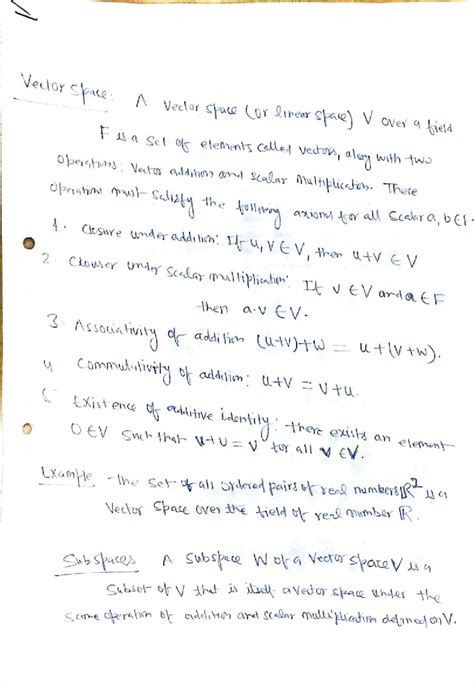 Vector space: A vector space (or linear space) V over a field
F is a set of elements called vectors, along with two
operations: Vector addition and scalar multiplication. These
operations must satisfy the following axioms for all scalar a, b ∈ F.
1. Closure under addition: If u, v ∈ V, then u+v ∈ V
2. Clouser under scalar multiplication: If v ∈ V and a ∈ F
then a.v ∈ V.
3. Associativity of addition (u+v)+w = u+(v+w).
4 Commutativity of addition: u+v = v+u.
5 Existence of additive identity: there exists an element
0 ∈ V such that v+0 = v for all v ∈ V.
Example The set of all ordered pairs of real numbers ℝ² is a
Vector space over the field of real number ℝ.
Subspaces A subspace W of a vector space V is a
subset of V that is itself a vector space under the
same operation of addition and scalar multiplication defined on V.